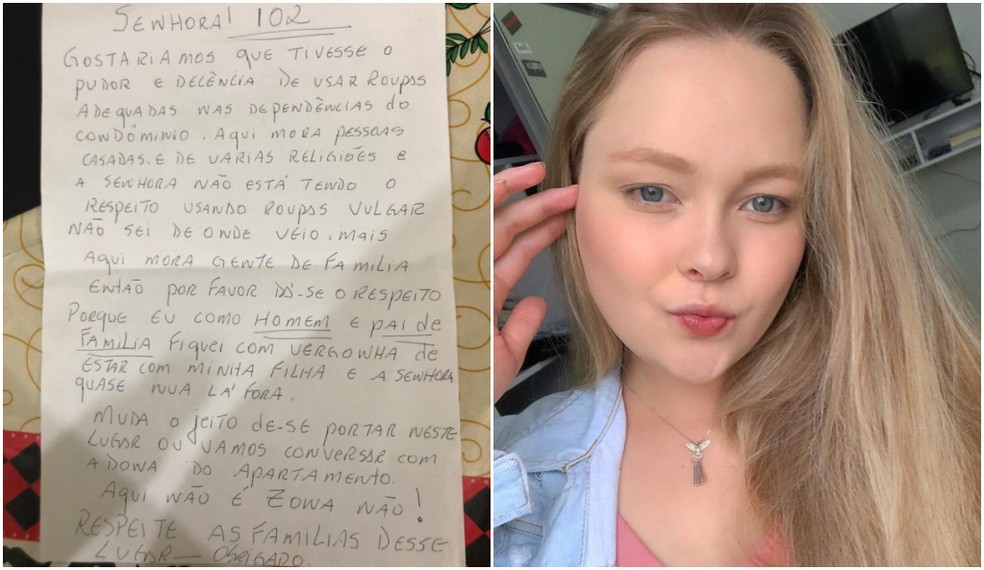 SENHORA! 102
GOSTARIAMOS QUE TIVESSE O
PUDOR E DECÊNCIA DE USAR ROUPAS
ADEQUADAS NAS DEPENDÊNCIAS do
CONDÔMINIO. AQUI MORA PESSOAS
CASADAS. E DE VARIAS RELIGIÕES E
A SENHORA NÃO ESTÁ TENDO O
RESPEITO USANDO ROUPAS VULGAR
NÃO SEI DE ONDE VEIO. MAIS
AQUI MORA GENTE DE FAMILIA
ENTÃO POR FAVOR DÊ-SE O RESPEITO
PORQUE EU COMO HOMEM E PAI de
FAMILIA FIQUEI COM VERGONHA de
ESTAR COM MINHA FILHA E A SENHORA
QUASE NUA LÁ FORA.
MUDA O jEITO DE-SE PORTAR NESTE
LUGAR OU VAMOS CONVERSAR COM
A DONA DO APARTAMENTO.
AQUI NÃO É ZONA NÃO!
RESPEITE AS FAMILIAS DESSE
LUGAR — OBRIGADO.